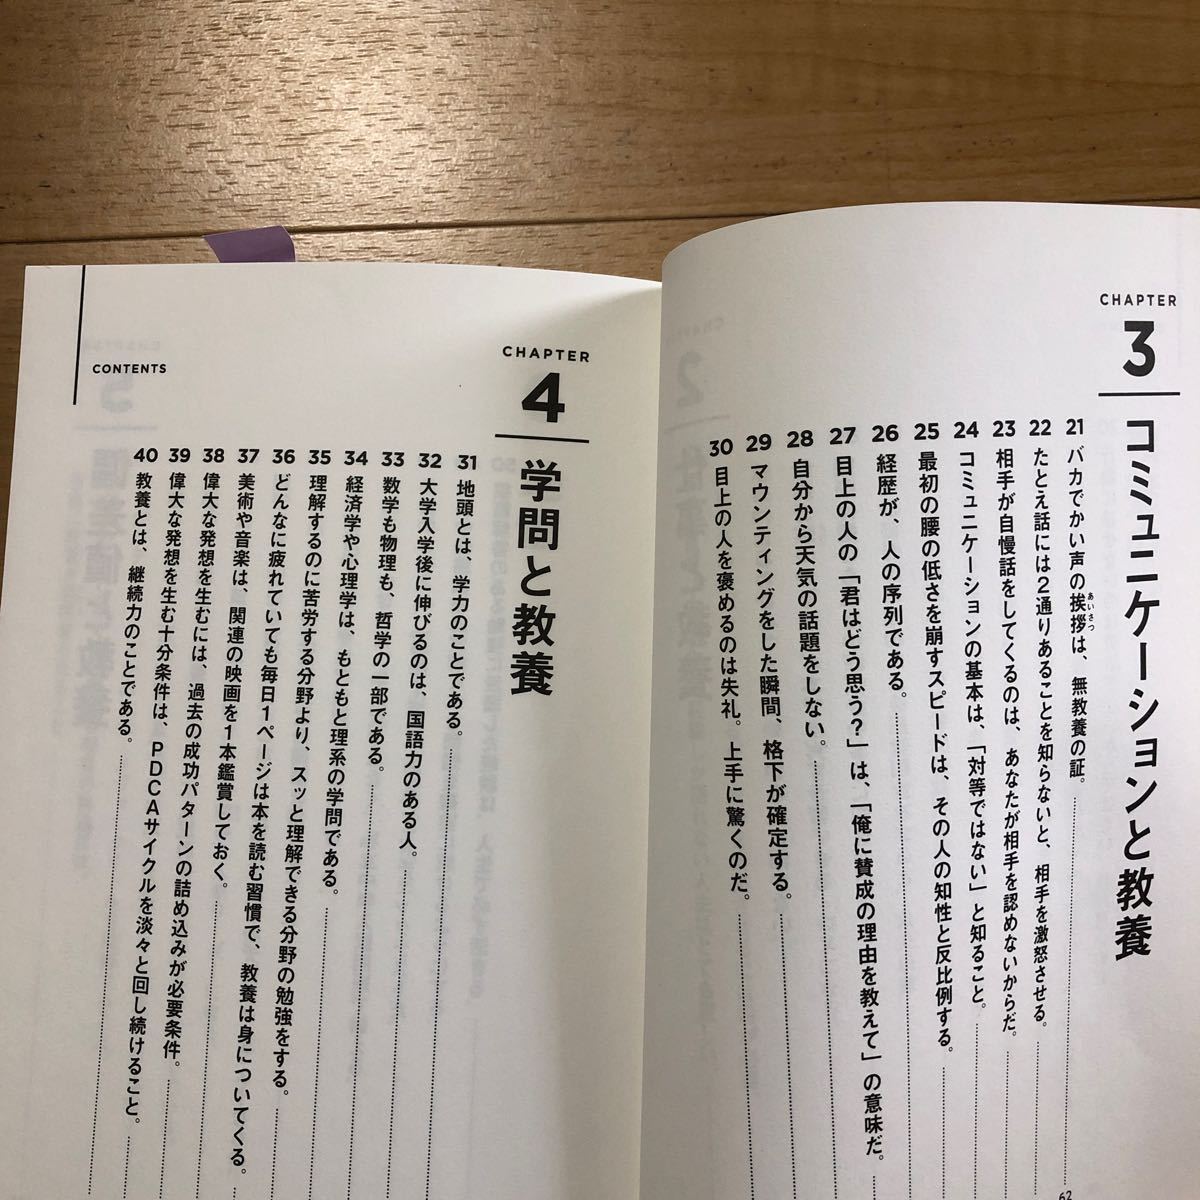 CHAPTER
3
コミュニケーションと教養
21 バカでかい声の挨拶は、無教養の証。
あいさつ
62
22 たとえ話には2通りあることを知らないと、相手を激怒させる。
23 相手が自慢話をしてくるのは、あなたが相手を認めないからだ。
24 コミュニケーションの基本は、「対等ではない」と知ること。
25 最初の腰の低さを崩すスピードは、その人の知性と反比例する。
26 経歴が、人の序列である。
27 目上の人の「君はどう思う?」は、「俺に賛成の理由を教えて」の意味だ。
28 自分から天気の話題をしない。
29 マウンティングをした瞬間、格下が確定する。
30 目上の人を褒めるのは失礼。上手に驚くのだ。
CHAPTER
4
学問と教養
31 地頭とは、学力のことである。
32 大学入学後に伸びるのは、国語力のある人。
33 数学も物理も、哲学の一部である。
34 経済学や心理学は、もともと理系の学問である。
35 理解するのに苦労する分野より、スッと理解できる分野の勉強をする。
36 どんなに疲れていても毎日1ページは本を読む習慣で、教養は身についてくる。
37 美術や音楽は、関連の映画を1本鑑賞しておく。
38 偉大な発想を生むには、過去の成功パターンの詰め込みが必要条件。
39 偉大な発想を生む十分条件は、PDCAサイクルを淡々と回し続けること。
40 教養とは、継続力のことである。
CONTENTS